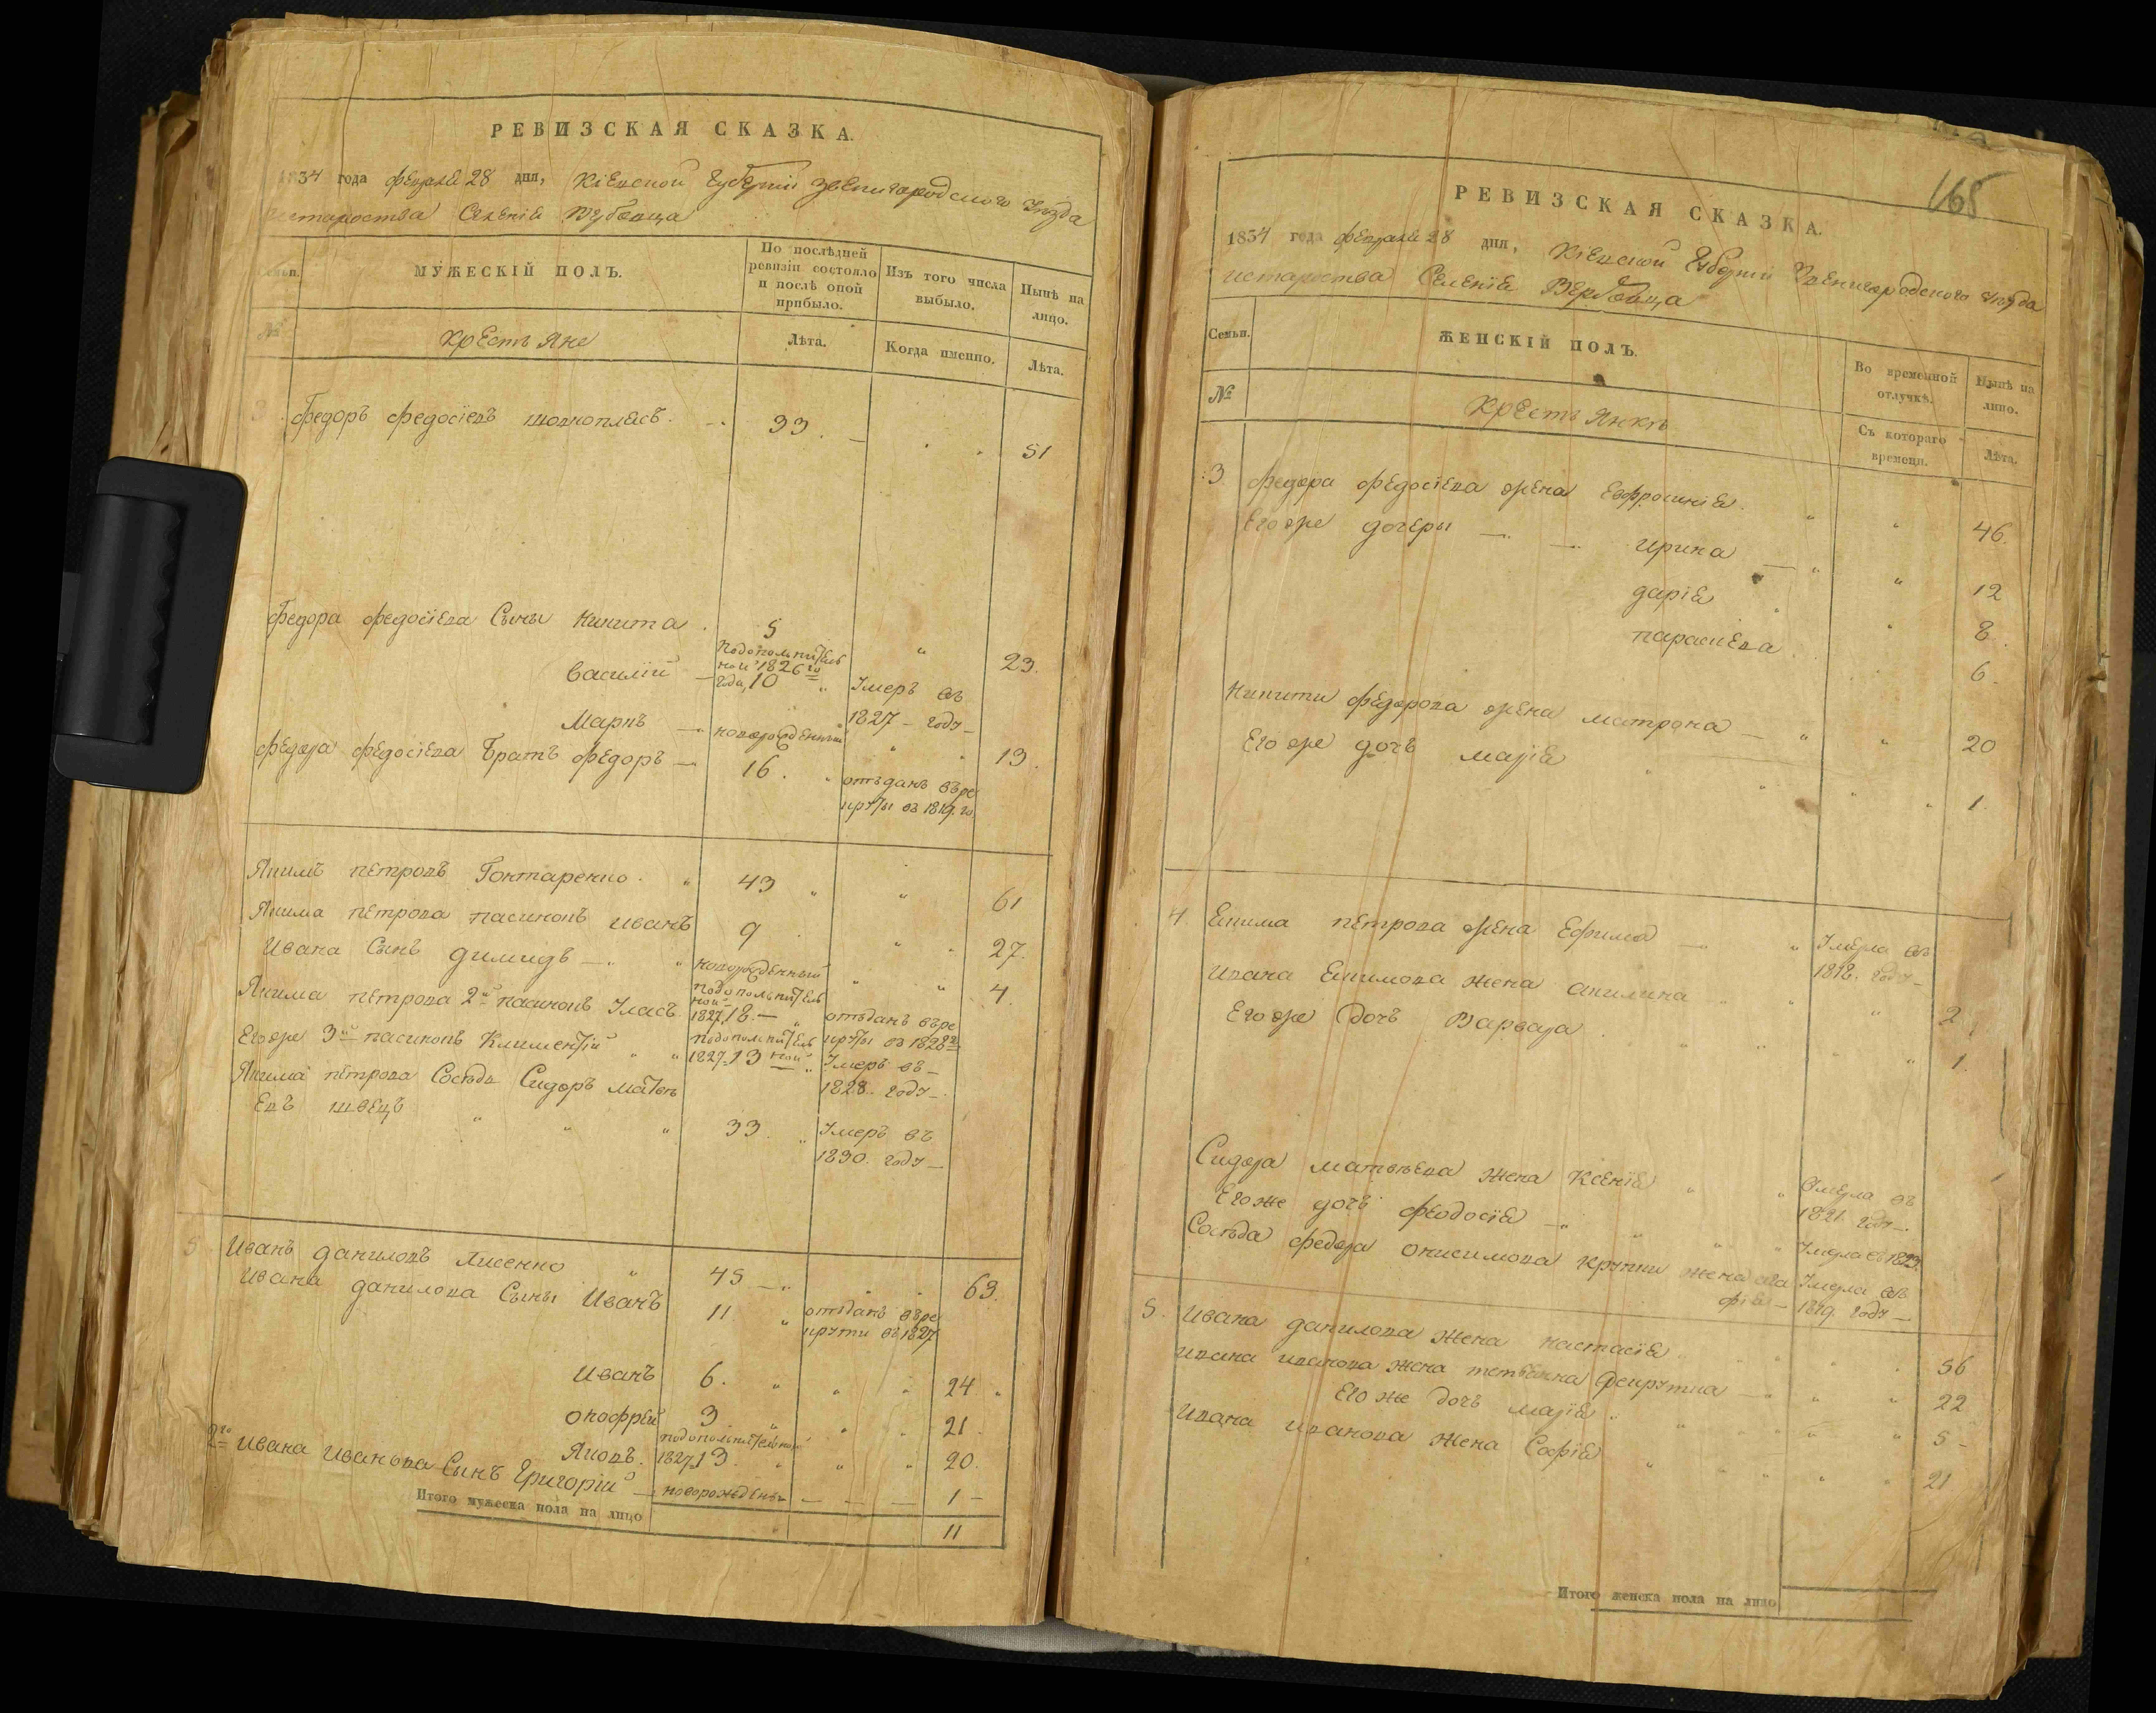 РЕВИЗСКАЯ СКАЗКА.
1834 года февраля 28 дня, Кіевской Губерніи Звенигородского уѣзда
староства Селенія Вербовца
Семьи.
МУЖЕСКІЙ ПОЛЪ.
По послѣдней ревизіи состояло и послѣ оной прибыло.
Изъ того числа выбыло.
Нынѣ на лицо.
№
Крестьяне
Лѣта.
Когда именно.
Лѣта.
3 Федоръ Федосіевъ 33 51
Федора Федосіева Сыны Никита 5 23.
Василій подополнительной 1826го года, 10 Умеръ въ 1827 году
Маркъ новорожденный 13.
Федора Федосіева Братъ Федоръ 16. отъданъ въ рекруты въ 1819. го
Якимъ Петровъ Гонтаренко 43 61
Якима Петрова пасинокъ Иванъ 9 27.
Ивана Сынъ Димидъ новорожденный 4.
Якима Петрова 2й пасинокъ Уласъ подополнительной 1827, 18. отъданъ въ рекруты въ 1828го
Егоже 3й пасинокъ Климентій подополнительной 1827. 13 Умеръ въ 1828. году
Якима Петрова Сосѣдъ Сидоръ Матвѣ
евъ Швецъ 33 Умеръ въ 1830. году
5 Иванъ Даниловъ Лисенко 45 63.
Ивана Данилова Сыны Иванъ 11 отъданъ въ рекрути въ 1827
Иванъ 6. 24
Онофрей 3 21.
Яковъ. подополнительной 1827, 13. 20.
2го Ивана Иванова Сынъ Григорій новорожденъ 1
Итого мужеска пола на лицо 11
165
РЕВИЗСКАЯ СКАЗКА.
1834 года февраля 28 дня, Кіевской Губерніи Звенигородского уѣзда
староства Селеніе Вербовца
Семьи.
ЖЕНСКІЙ ПОЛЪ.
Во временной отлучкѣ.
Нынѣ на лицо.
№
Крестьянкъ
Съ котораго времени.
Лѣта.
3. Федора Федосіева жена Евфросинія 46.
Егоже дочеры Ирина 12
Дарія 8.
Параскева 6.
Никити Федорова жена Матрона 20
Егоже дочь Марія 1.
4. Екима Петрова жена Ефима Умерла въ 1818. году
Ивана Екимова жена Акилина 2
Егоже дочь Варвара 1.
Сидора Матвѣева жена Ксенія Умерла въ 1821. году
Егоже дочь Феодосія Умерла въ 1823.
Сосѣда Федора Онисимова Крупки жена Ага
фія Умерла въ 1819. году
5. Ивана Данилова жена Настасія 56
Ивана Иванова жена Феврутина 22
Егоже дочь Марія 5
Ивана Иванова жена Софія 21
Итого женска пола на лицо